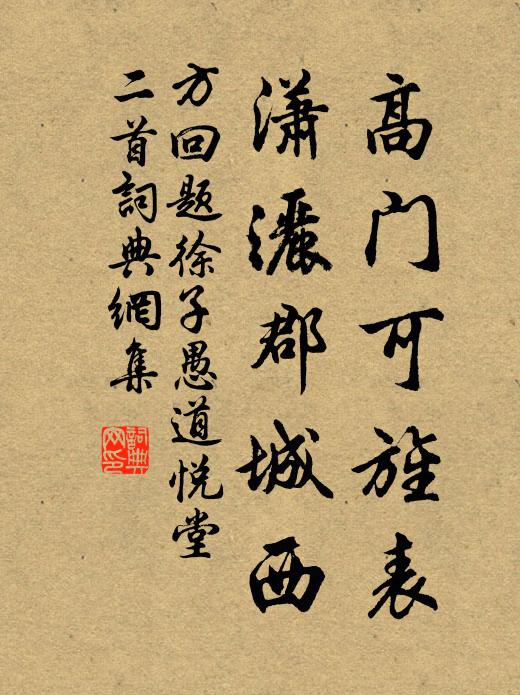 高门可旌表
潇灑郡城西
方回题徐子愚道悦堂
二首詞典網集
詞典
网印